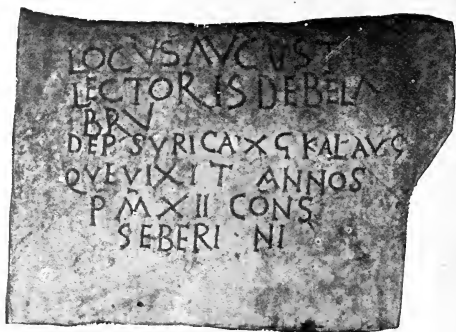 LOCVSAVCVSTI
LECTORIS DEBELA
BRV
DEP SVRICA XϚ KAL AVG
QVEVIXIT ANNOS
P M XII CONS
SEBERI NI